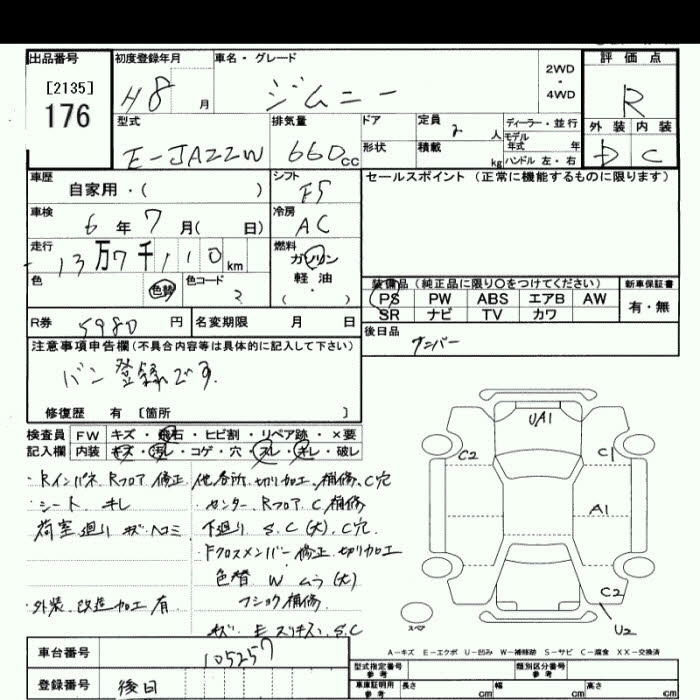 出品番号
[2135]
176
初度登録年月
H8 月
車名・グレード
ジムニー
2WD
・
4WD
評価点
R
型式
E-JA22W
排気量
660cc
ドア
形状
定員 2 人
積載 kg
ディーラー・並行
モデル
年式 年
ハンドル 左・右
外装 内装
D C
車歴
自家用・( )
シフト
F5
セールスポイント(正常に機能するものに限ります)
車検
6年7月( 日)
冷房
AC
走行
13万7千110km
燃料
ガソリン
軽油
( ・ )
色
色替
色コード
R券 5980円
名変期限 月 日
装備品(純正品に限り○をつけてください)
PS PW ABS エアB AW
SR ナビ TV カワ
新車保証書
有・無
後日品
ナンバー
注意事項申告欄(不具合内容等は具体的に記入して下さい)
バン登録です.
修復歴 有〔箇所 〕
検査員
記入欄
FW キズ・飛石・ヒビ割・リペア跡・×要
内装 キズ・汚レ・コゲ・穴・スレ・キレ・破レ
・Rインパネ、Rフロア修正
・シート キレ
荷室廻り キズヘコミ
・外装、改造加工有
他各所 切り加工、補修、C穴
・センター、Rフロア C補修
下廻り S.C(大)、C穴
・Fクロスメンバー修正 切り加工
色替 W ムラ(大)
補修
キズ E スリキズ、S.C
UA1
C2
C1
A1
C2
U2
スペア
A－キズ E－エクボ U－凹み W－補修跡 S－サビ C－腐食 XX－交換済
車台番号
105257
登録番号
後日
型式指定番号
参考
類別区分番号
参考
車庫証明用
参考
長さ cm
幅 cm
高さ cm